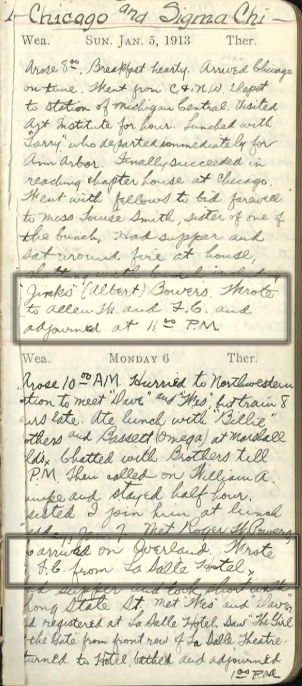 Chicago and Sigma Chi
Wea. SUN. JAN. 5, 1913 Ther.
Arose 8 00. Breakfast hearty. Arrived Chicago
on time. Went from C & N.W. Depot
to station of Michigan Central. Visited
Art Institute for hour. Lunched with
"Larry" who departed immediately for
Ann Arbor. Finally succeeded in
reaching chapter house at Chicago.
Went with fellows to bid farewell
to Miss Louise Smith, sister of one of
the bunch. Had supper and
sat around fire at house,
"Jinks" (Albert) Bowers. Wrote
to Allen W. and F.C. and
adjourned at 11 00 P.M.
Wea. MONDAY 6 Ther.
Arose 10 00 A.M. Hurried to Northwestern
tion to meet "Dave" and "Wes" but train 8
urs late. Ate lunch with "Billie"
others and Bassett (Omega) at Marshall
lds. Chatted with Brothers till
P.M. Then called on William A.
and stayed half hour.
sisted I join him at lunch
Met Roger W. Bowers,
arrived on Overland. Wrote
F.C. from La Salle Hotel.
supper and took short
long State St. Met "Wes" and "Dave"
d registered at La Salle Hotel. Saw The Girl
the Gate from front row of La Salle Theatre.
turned to Hotel bathed and adjourned
1 00 P.M.